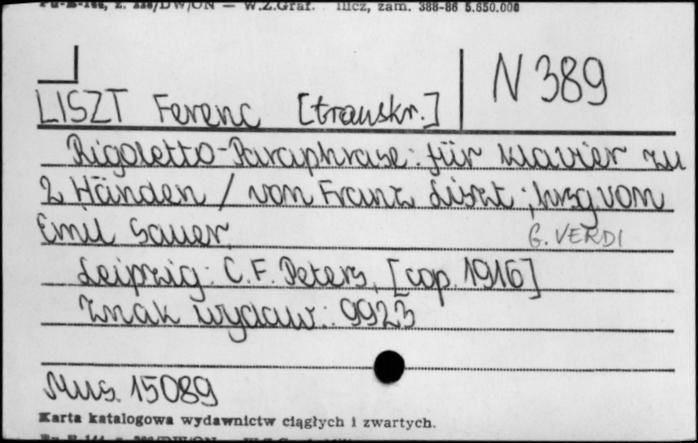 W.Z.Graf. zam. 388-86 5.650.000
N 389
LISZT Ferenc [transkr.]
Rigoletto-Paraphrase : für Klavier zu
2 Händen / von Franz Liszt ; hrsg von
Emil Sauer
G. VERDI
Leipzig : C. F. Peters, [cop. 1916]
Znak wydaw.: 9923
Mus. 15089
Karta katalogowa wydawnictw ciągłych i zwartych.